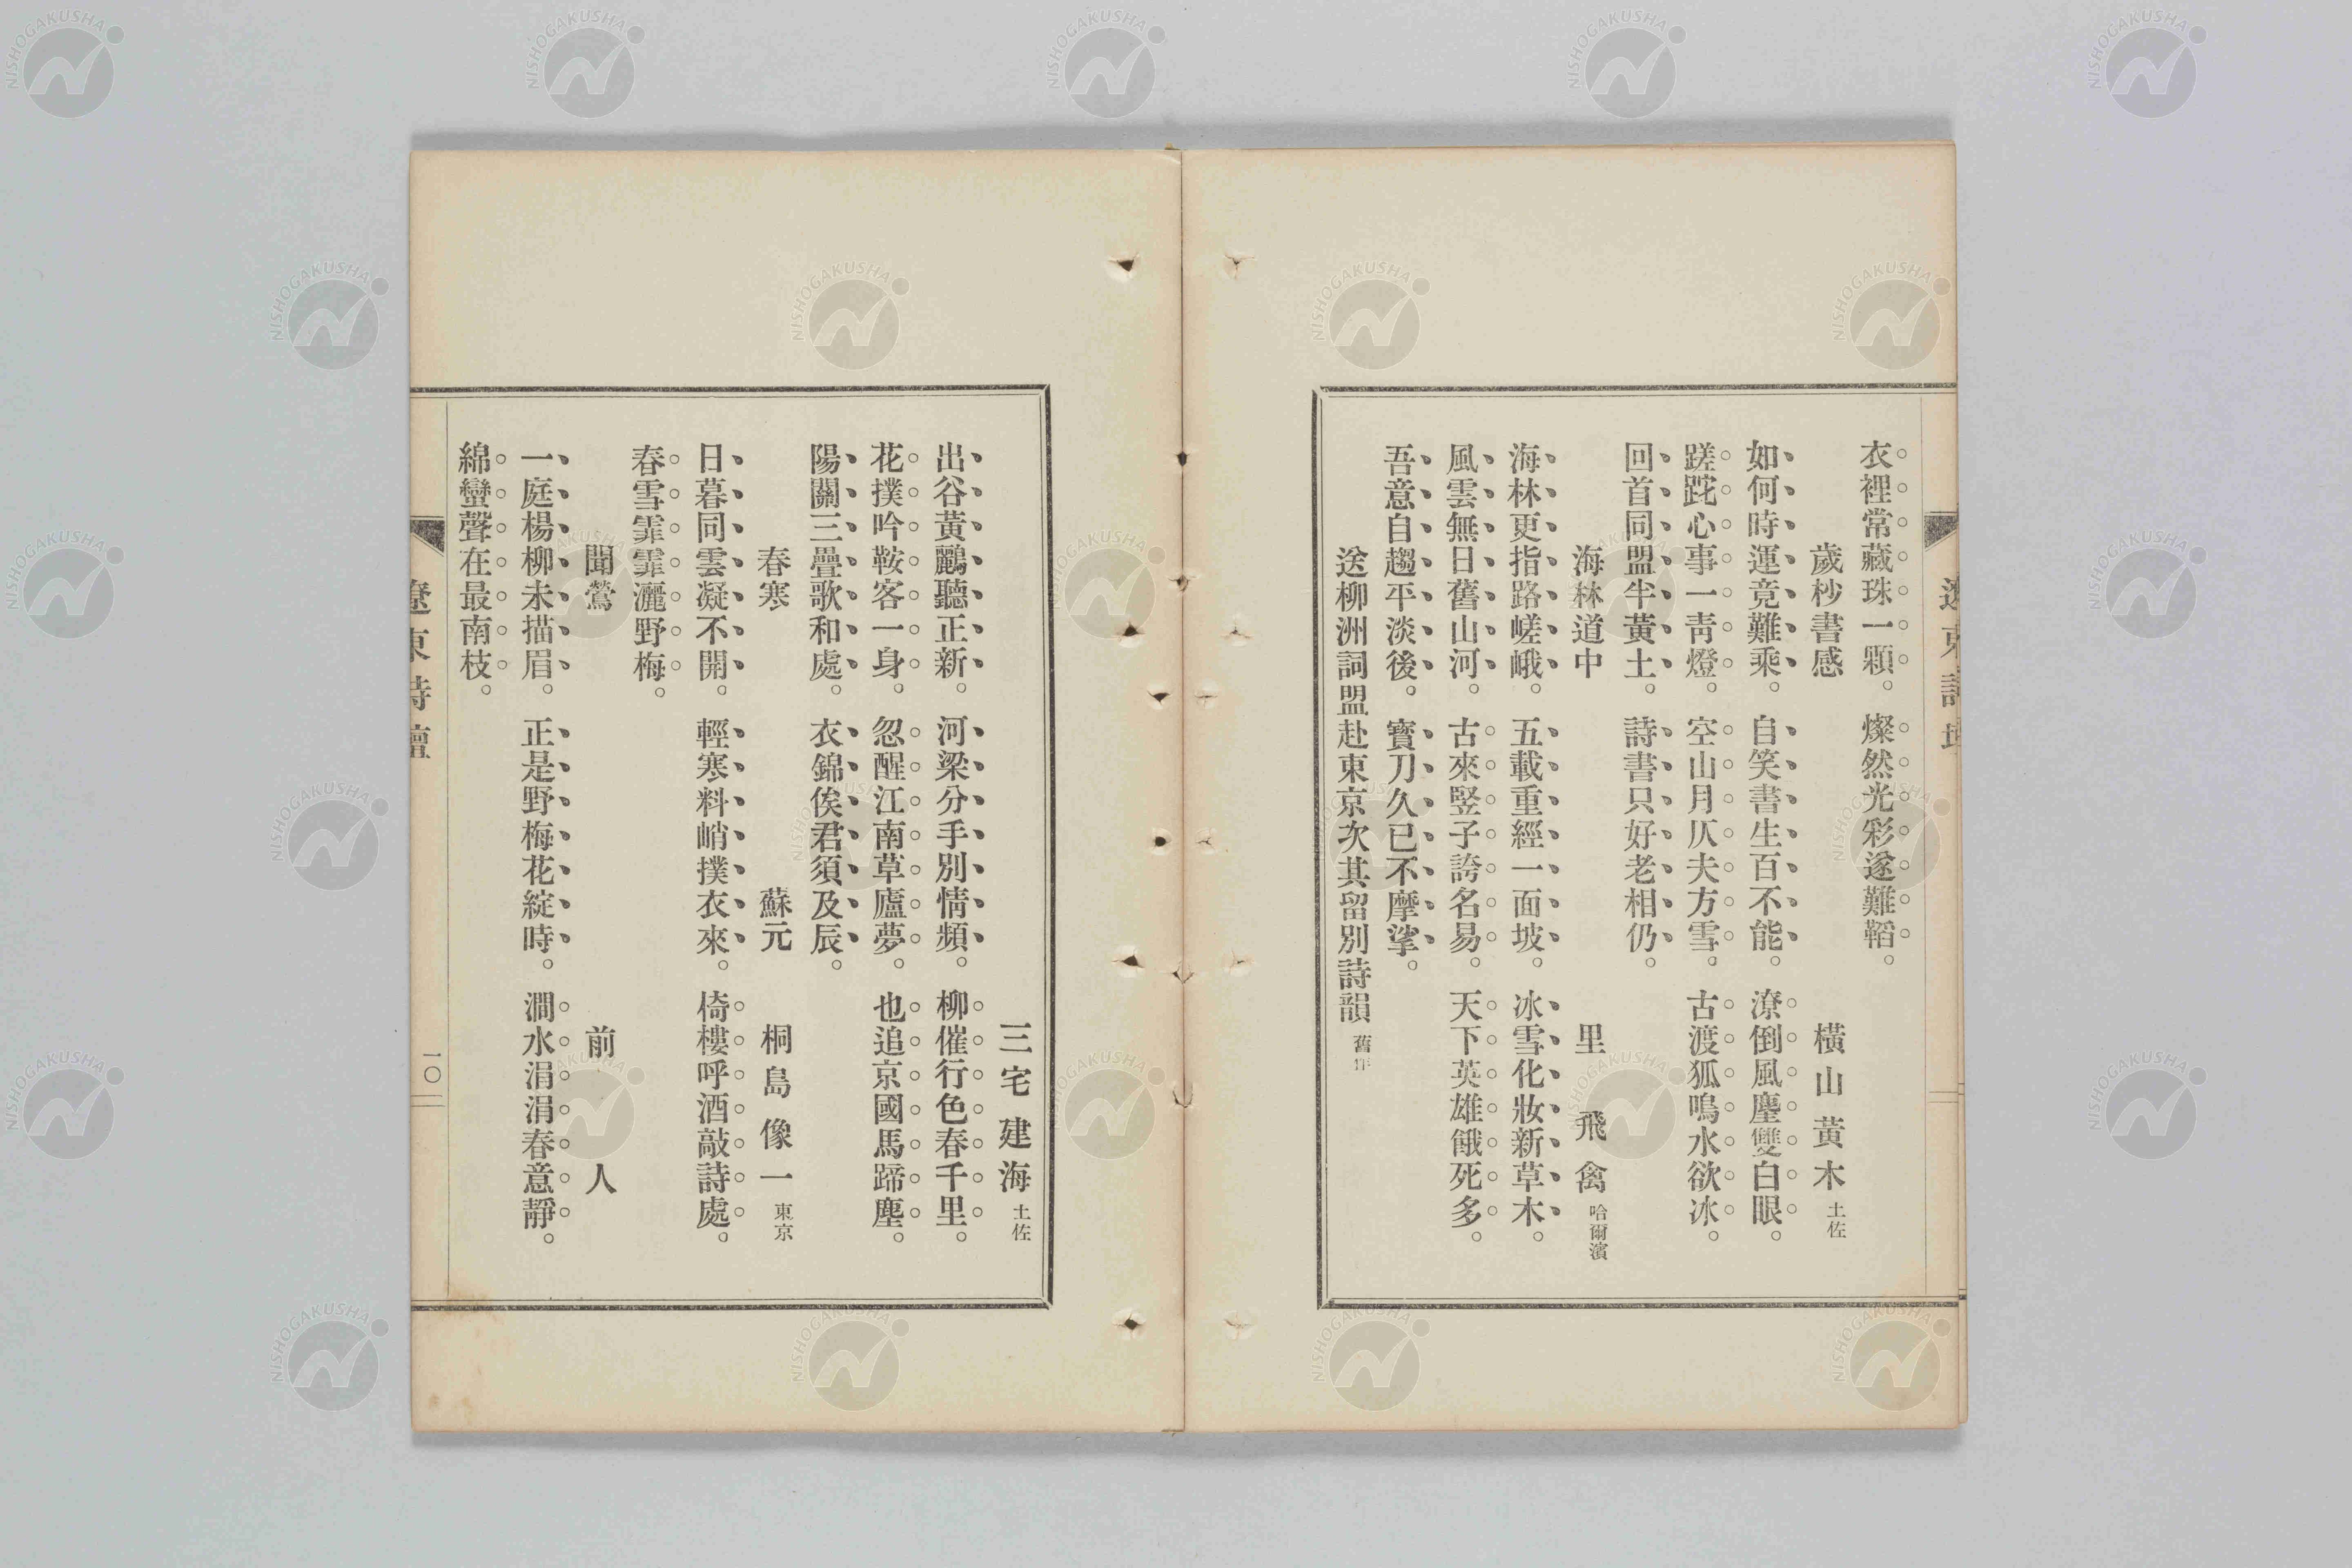 衣裡常藏珠一顆。燦然光彩遂難韜。
歲杪書感 橫山黃木 土佐
如何時運竟難乘。自笑書生百不能。潦倒風塵雙白眼。
蹉跎心事一靑燈。空山月仄夫方雪。古渡狐鳴水欲冰。
回首同盟半黃土。詩書只好老相仍。
海林道中 里飛禽 哈爾濱
海林更指路嵯峨。五載重經一面坡。冰雪化妝新草木。
風雲無日舊山河。古來竪子誇名易。天下英雄餓死多。
吾意自趨平淡後。寶刀久已不摩挲。
送柳洲詞盟赴東京次其留別詩韻 舊作
三宅建海 土佐
出谷黃鸝聽正新。河梁分手別情頻。柳催行色春千里。
花撲吟鞍客一身。忽醒江南草廬夢。也追京國馬蹄塵。
陽關三疊歌和處。衣錦俟君須及辰。
春寒 蘇元 桐島像一 東京
日暮同雲凝不開。輕寒料峭撲衣來。倚樓呼酒敲詩處。
春雪霏霏灑野梅。
聞鶯 前人
一庭楊柳未描眉。正是野梅花綻時。澗水涓涓春意靜。
綿蠻聲在最南枝。
遼東詩壇
一〇